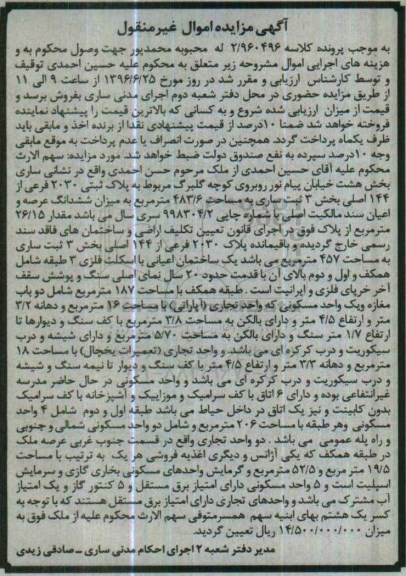 آگهی مزایده اموال غیرمنقول
به موجب پرونده کلاسه ۲/۹۶۰۴۹۶ له محبوبه محمدپور جهت وصول محکوم به و
هزینه های اجرایی اموال مشروحه زیر متعلق به محکوم علیه حسین احمدی توقیف
و توسط کارشناس ارزیابی و مقرر شد در روز مورخ ۱۳۹۶/۶/۲۵ از ساعت ۹ الی ۱۱
از طریق مزایده حضوری در محل دفتر شعبه دوم اجرای مدنی ساری بفروش برسد و
قیمت از میزان ارزیابی شده شروع و به کسانی که بالاترین قیمت را پیشنهاد نماینده
فروخته خواهد شد ضمنا ۱۰درصد از قیمت پیشنهادی نقدا از برنده اخذ و مابقی باید
ظرف یکماه پرداخت گردد. همچنین در صورت انصراف یا عدم پرداخت به موقع مابقی
وجه ۱۰درصد سپرده به نفع صندوق دولت ضبط خواهد شد. مورد مزایده: سهم الارث
محکوم علیه آقای حسین احمدی از ملک مرحوم حسن احمدی واقع در نشانی ساری
بخش هشت خیابان پیام نور روبروی کوچه گلبرگ مربوط به پلاک ثبتی ۲۰۳۰ فرعی از
۱۴۴ اصلی بخش ۳ ثبت ساری به مساحت ۴۸۳/۶ مترمربع به میزان ششدانگ عرصه و
اعیان سند مالکیت اصلی با شماره چاپی ۹۹۸۳۰۴/۲ سری سال می باشد مقدار ۲۶/۱۵
مترمربع از پلاک فوق در اجرای قانون تعیین تکلیف اراضی و ساختمان های فاقد سند
رسمی خارج گردیده و باقیمانده پلاک ۲۰۳۰ فرعی از ۱۴۴ اصلی بخش ۳ ثبت ساری
به مساحت ۴۵۷ مترمربع می باشد یک ساختمان اعیانی با اسکلت فلزی ۳ طبقه شامل
همکف و اول و دوم بالای آن با قدمت حدود ۲۰ سال نمای اصلی سنگ و پوشش سقف
آخر خرپای فلزی و ایرانیت است . طبقه همکف با مساحت ۱۸۷ مترمربع شامل دو باب
مغازه ویک واحد مسکونی که واحد تجاری (آپاراتی) با مساحت ۱۶ مترمربع و دهانه ۳/۲
متر و ارتفاع ۴/۵ متر و دارای بالکن به مساحت ۳/۸ مترمربع با کف سنگ و دیوارها تا
ارتفاع ۱/۷ متر سنگ و دارای بالکن به مساحت ۵/۷۰ مترمربع و دارای شیشه و درب
سیکوریت و درب کرکره ای می باشد. و واحد تجاری (تعمیرات یخچال) با مساحت ۱۸
مترمربع و دهانه ۳/۳ متر و ارتفاع ۴/۵ متر با کف سنگ و دیوار تا نیمه سنگ و شیشه
و درب سیکوریت و درب کرکره ای می باشد و واحد مسکونی در حال حاضر مدرسه
غیرانتفاعی بوده و دارای ۶ اتاق با کف سرامیک و موزاییک و آشپزخانه با کف سرامیک
بدون کابینت و نیز یک اتاق در داخل حیاط می باشد طبقه اول و دوم شامل ۴ واحد
مسکونی وهر طبقه با مساحت ۲۰۶ مترمربع و شامل دو واحد مسکونی شمالی و جنوبی
و راه پله عمومی می باشد . دو واحد تجاری واقع در قسمت جنوب غربی عرصه ملک
در طبقه همکف که یکی آژانس و دیگری اغذیه فروشی هر یک به ترتیب با مساحت
۱۹/۵ متر مربع و ۵۲/۵ مترمربع و گرمایش واحدهای مسکونی بخاری گازی و سرمایش
اسپلیت است و ۵ واحد مسکونی دارای امتیاز برق مستقل و ۵ کنتور گاز و یک امتیاز
آب مشترک می باشد و واحدهای تجاری دارای امتیاز برق مستقل هستند که با توجه به
کسر یک هشتم بهای ابنیه سهم همسرمتوفی سهم الارث محکوم علیه از ملک فوق به
میزان ۱۴/۵۰۰/۰۰۰/۰۰۰ ریال تعیین گردید.
مدیر دفتر شعبه ۲ اجرای احکام مدنی ساری ـ صادقی زیدی